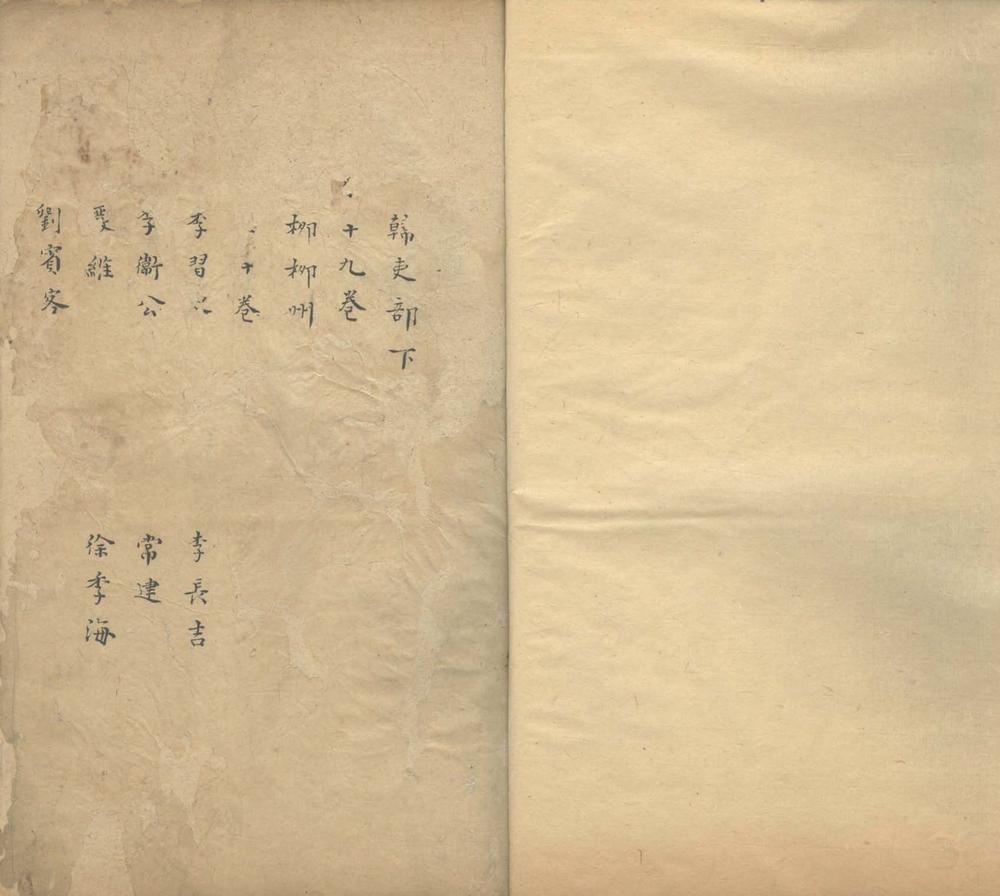 韓吏部下
十九卷
柳柳州
十卷
李習
李長吉
李衛公
常建
維
徐季海
劉賓客